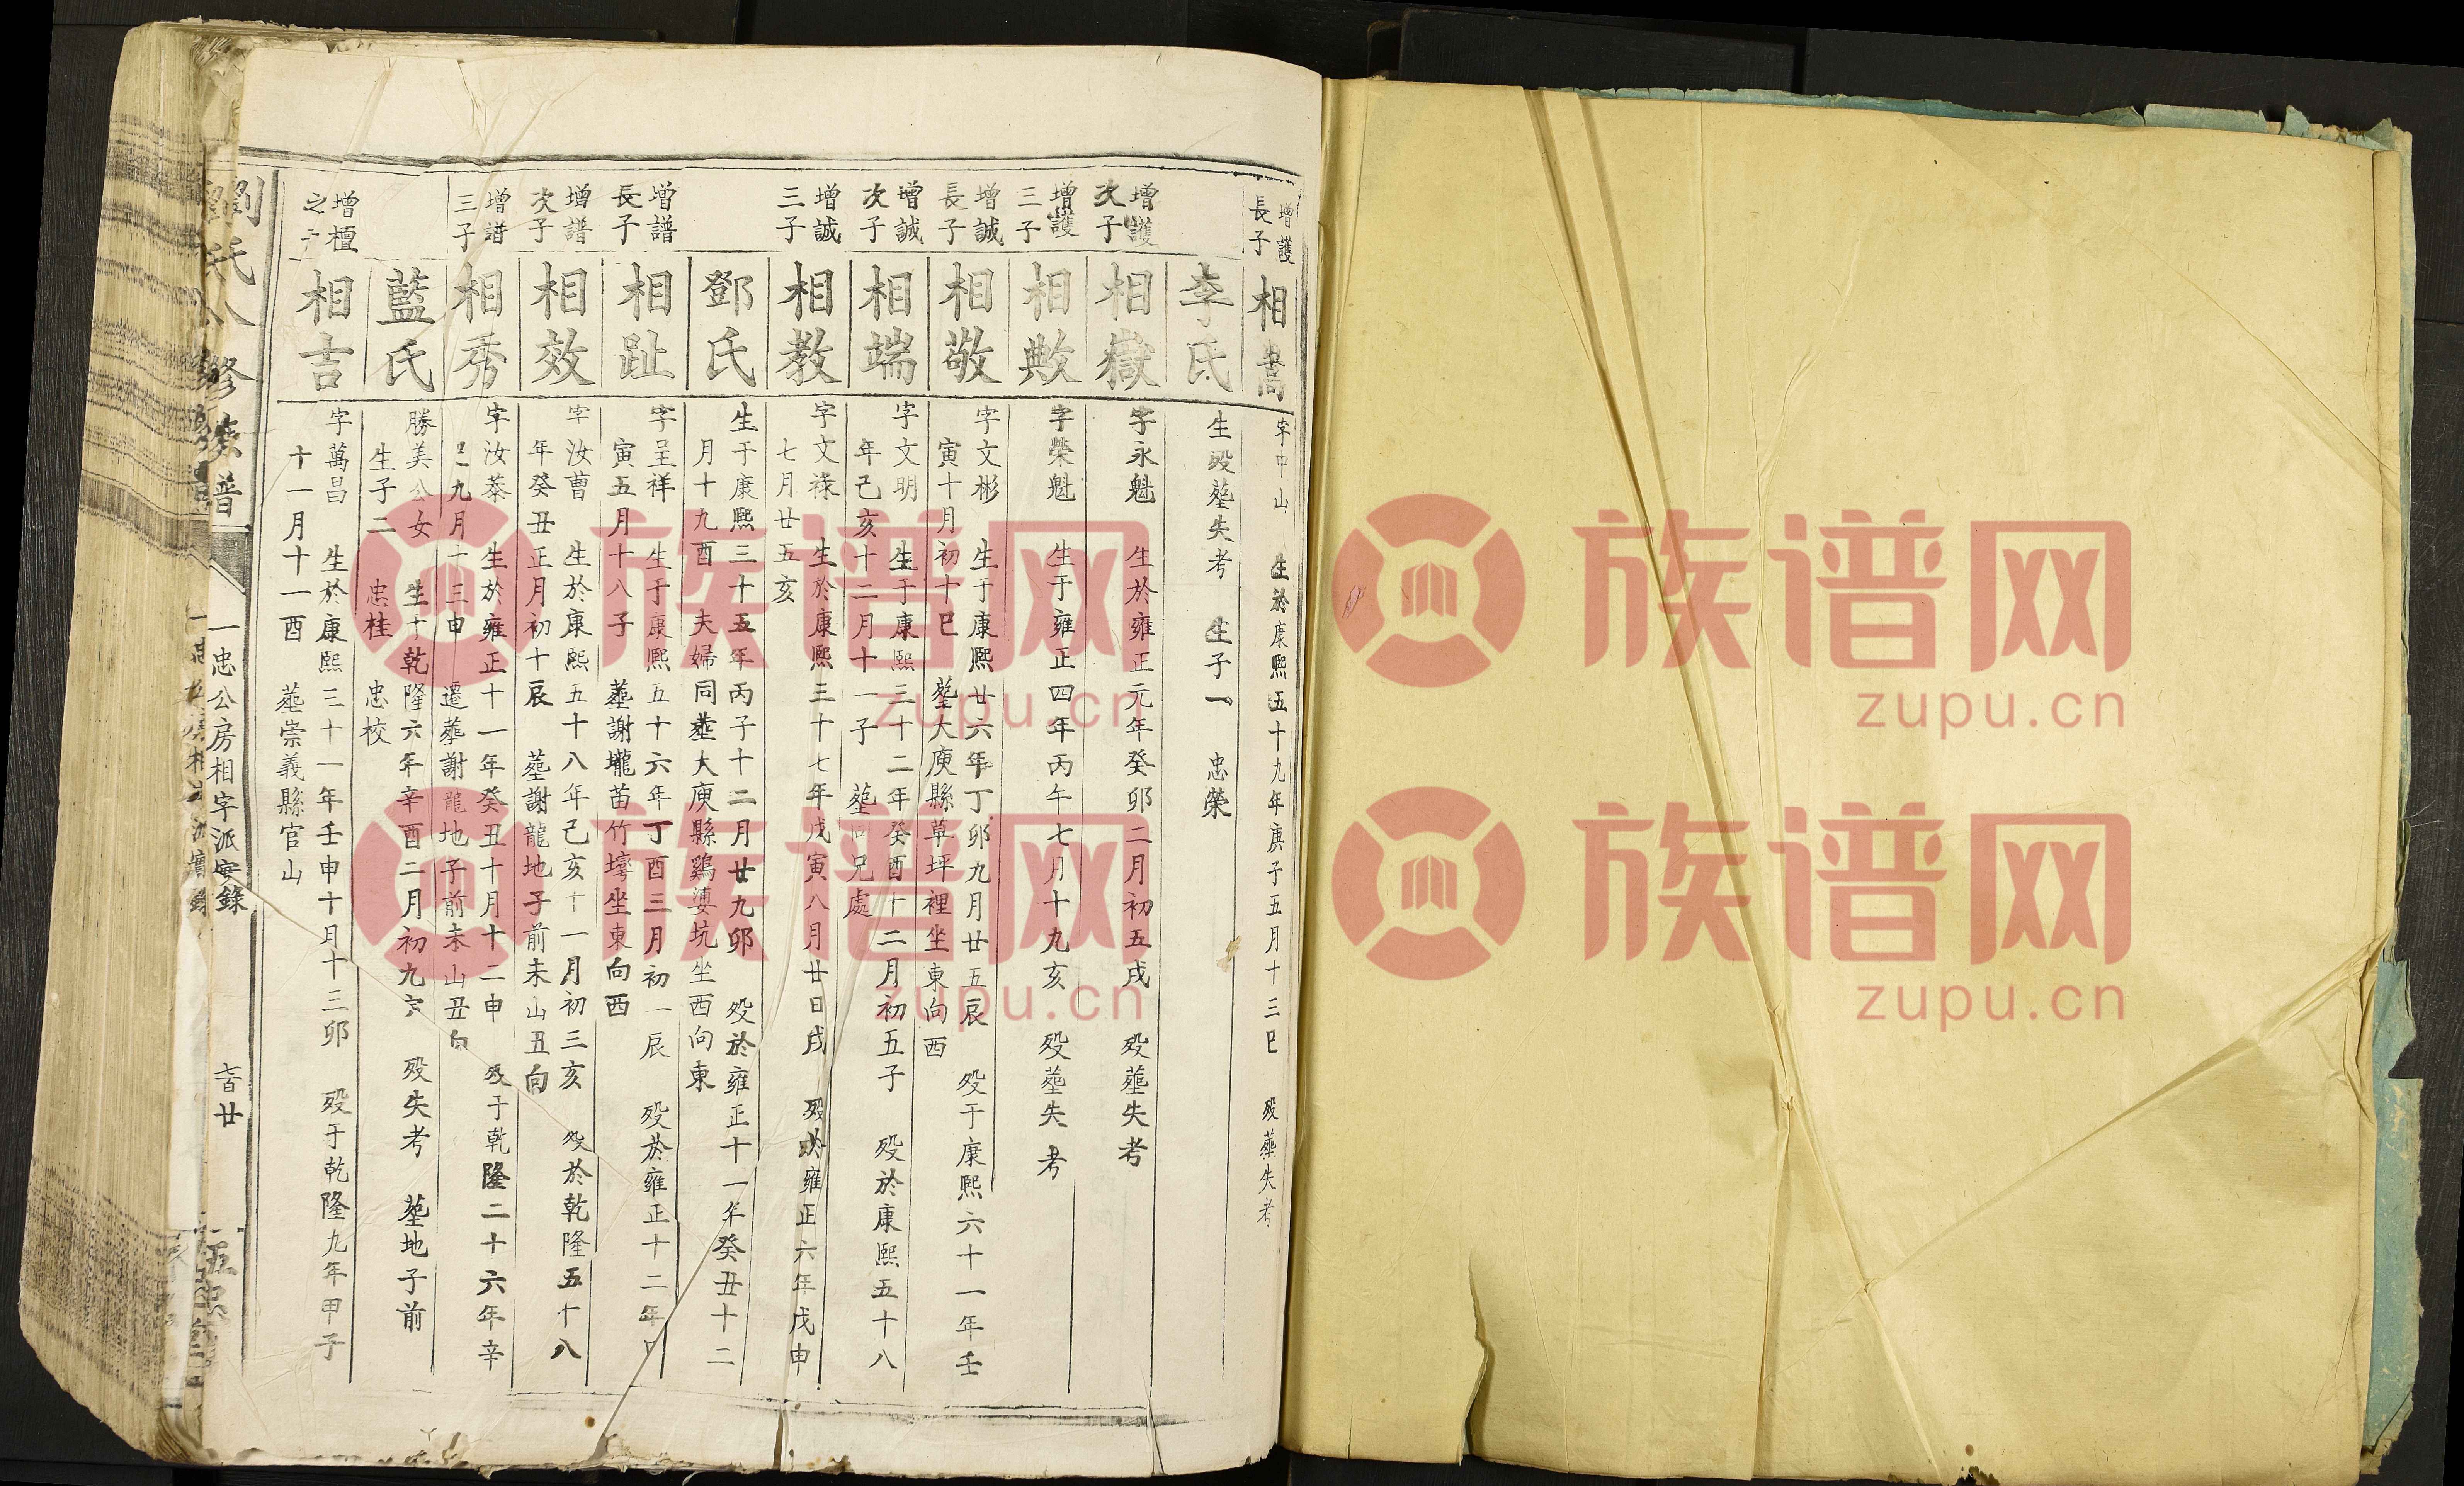 增護
長子
相嵩
字中山 生於康熙五十九年庚子五月十三巳 歿塟失考
李氏
生歿塟失考 生子一 忠榮
增護
次子
相嶽
字永魁 生於雍正元年癸卯二月初五戌 歿塟失考
增護
三子
相敟
字榮魁 生于雍正四年丙午七月十九亥 歿塟失考
增誠
長子
相敬
字文彬 生于康熙廿六年丁卯九月廿五辰 歿于康熙六十一年壬
寅十月初十巳 塟大庾縣草坪裡坐東向西
增誠
次子
相端
字文明 生于康熙三十二年癸酉十二月初五子 歿於康熙五十八
年己亥十二月十一子 塟同兄處
增誠
三子
相教
字文祿 生於康熙三十七年戊寅八月廿日戌 歿於雍正六年戊申
七月廿五亥
鄧氏
生于康熙三十五年丙子十二月廿九卯 歿於雍正十一年癸丑十二
月十九酉 夫婦同塟大庾縣鷄婆坑坐西向東
增譜
長子
相趾
字呈祥 生于康熙五十六年丁酉三月初一辰 歿於雍正十二年
寅五月十八子 塟謝壠苗竹塆坐東向西
增譜
次子
相效
字汝曹 生於康熙五十八年己亥十一月初三亥 歿於乾隆五十八
年癸丑正月初十辰 塟謝龍地子前未山丑向
增譜
三子
相秀
字汝蓁 生於雍正十一年癸丑十月十二申 歿于乾隆二十六年辛
巳九月十三申 遷塟謝龍地子前未山丑向
藍氏
勝美公女 生于乾隆六年辛酉二月初九 歿失考 塟地子前
生子二 忠桂 忠校
增檀
之子
相吉
字萬昌 生於康熙三十一年壬申十月十三卯 歿于乾隆九年甲子
十一月十一酉 塟崇義縣官山
劉氏八修族譜
一忠公房相字派實錄
七百廿
五忠堂
族谱网
zupu.cn
族谱网
zupu.cn
族谱网
zupu.cn
族谱网
zupu.cn